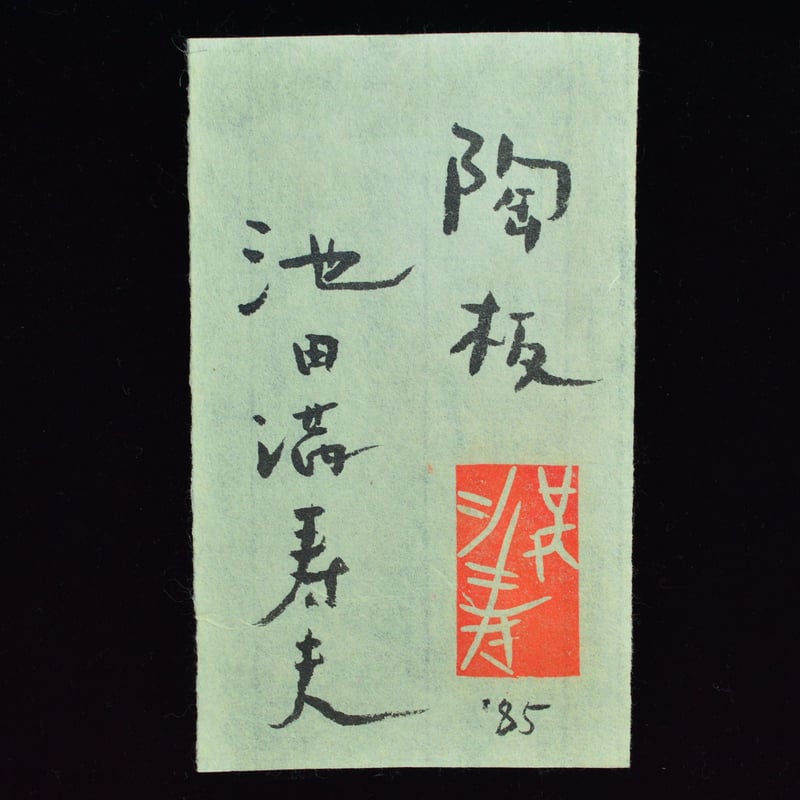 陶板
満寿
'85
池田満寿夫